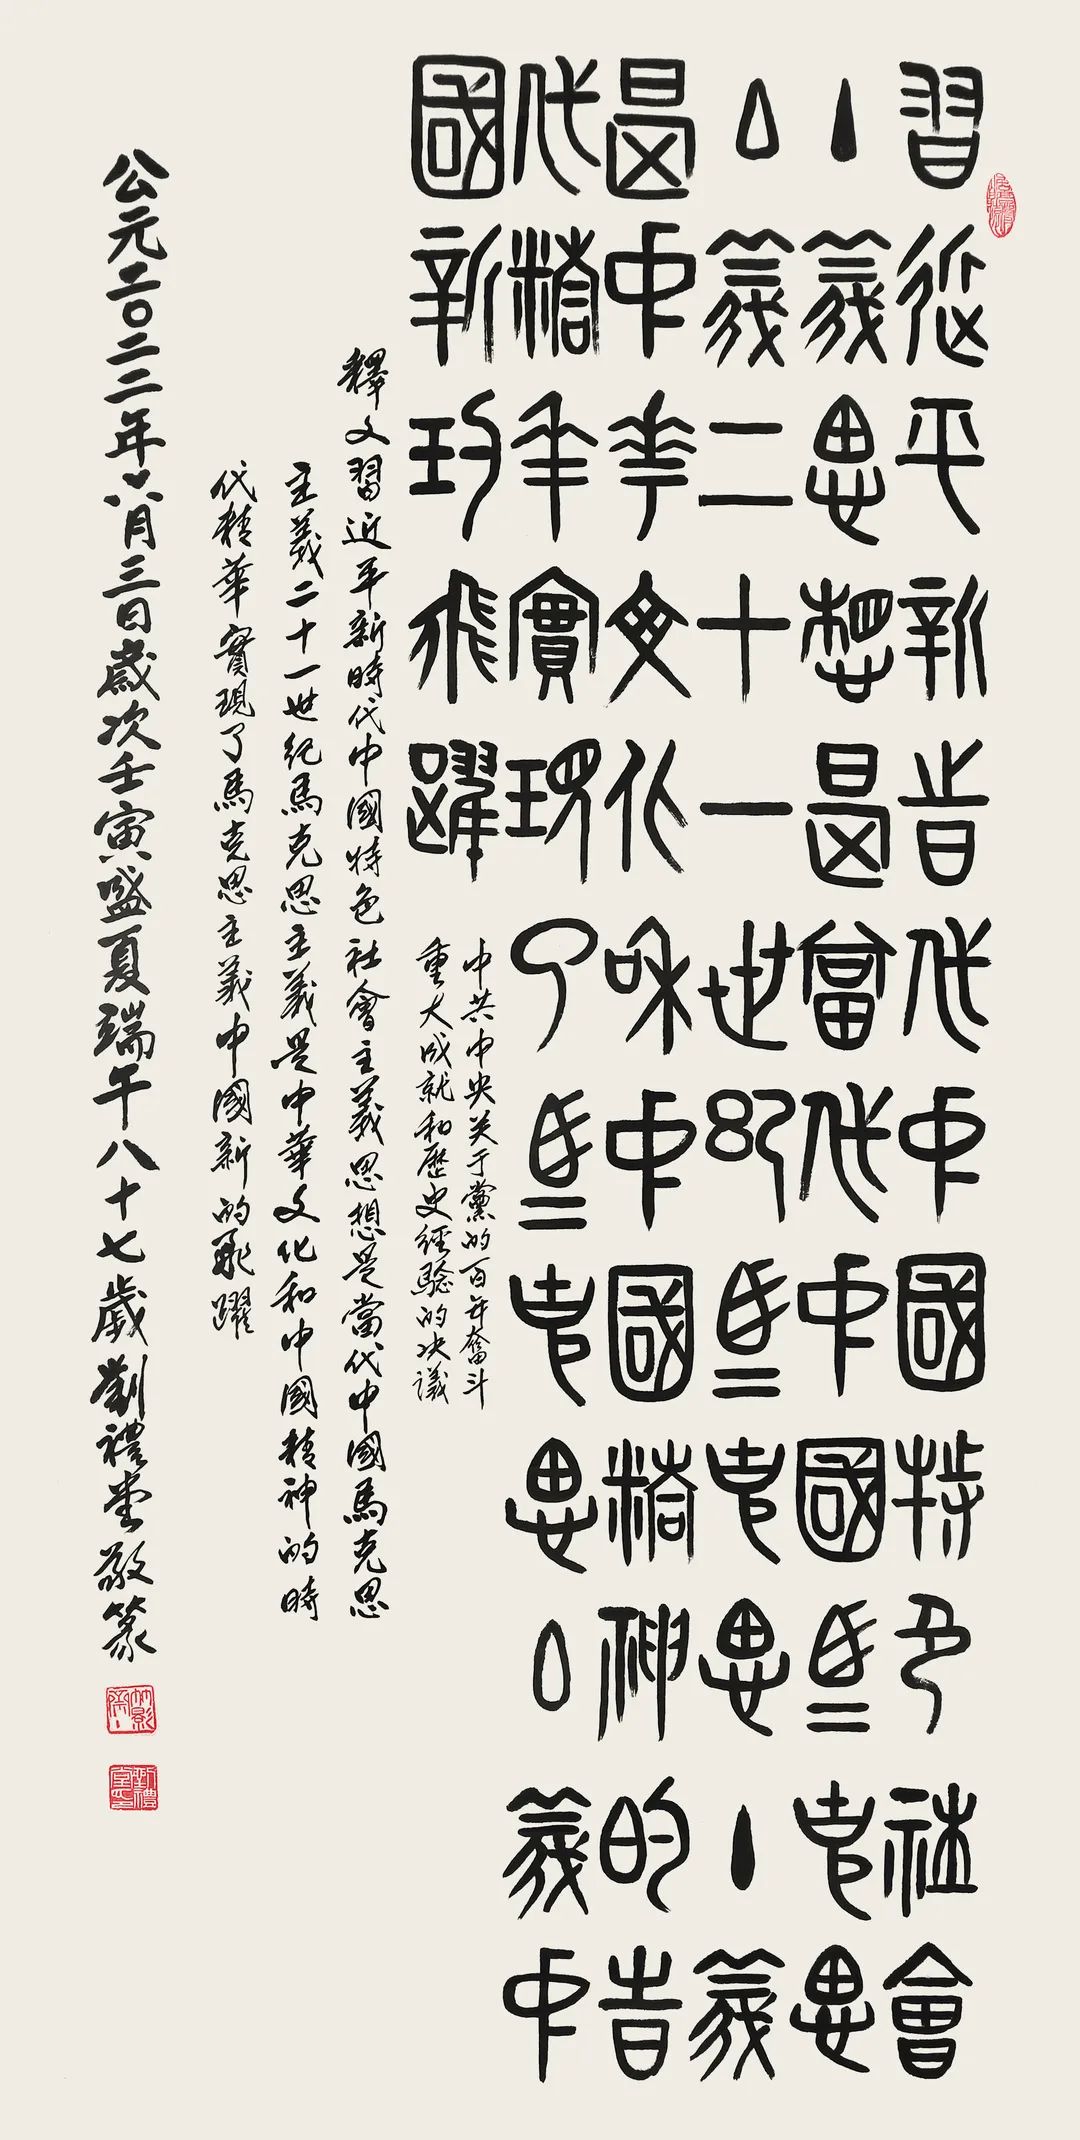 習近平新時代中國特色社會
主義思想是當代中國馬克思
主義二十一世紀馬克思主義
是中華文化和中國精神的時
代精華實現了馬克思主義中
國新的飛躍
中共中央关于黨的百年奮斗
重大成就和歷史經驗的决議
釋文習近平新時代中國特色社會主義思想是當代中國馬克思
主義二十一世紀馬克思主義是中華文化和中國精神的時
代精華實現了馬克思主義中國新的飛躍
公元二〇二二年六月三日歲次壬寅盛夏端午八十七歲劉禮堂敬篆
劉禮堂印